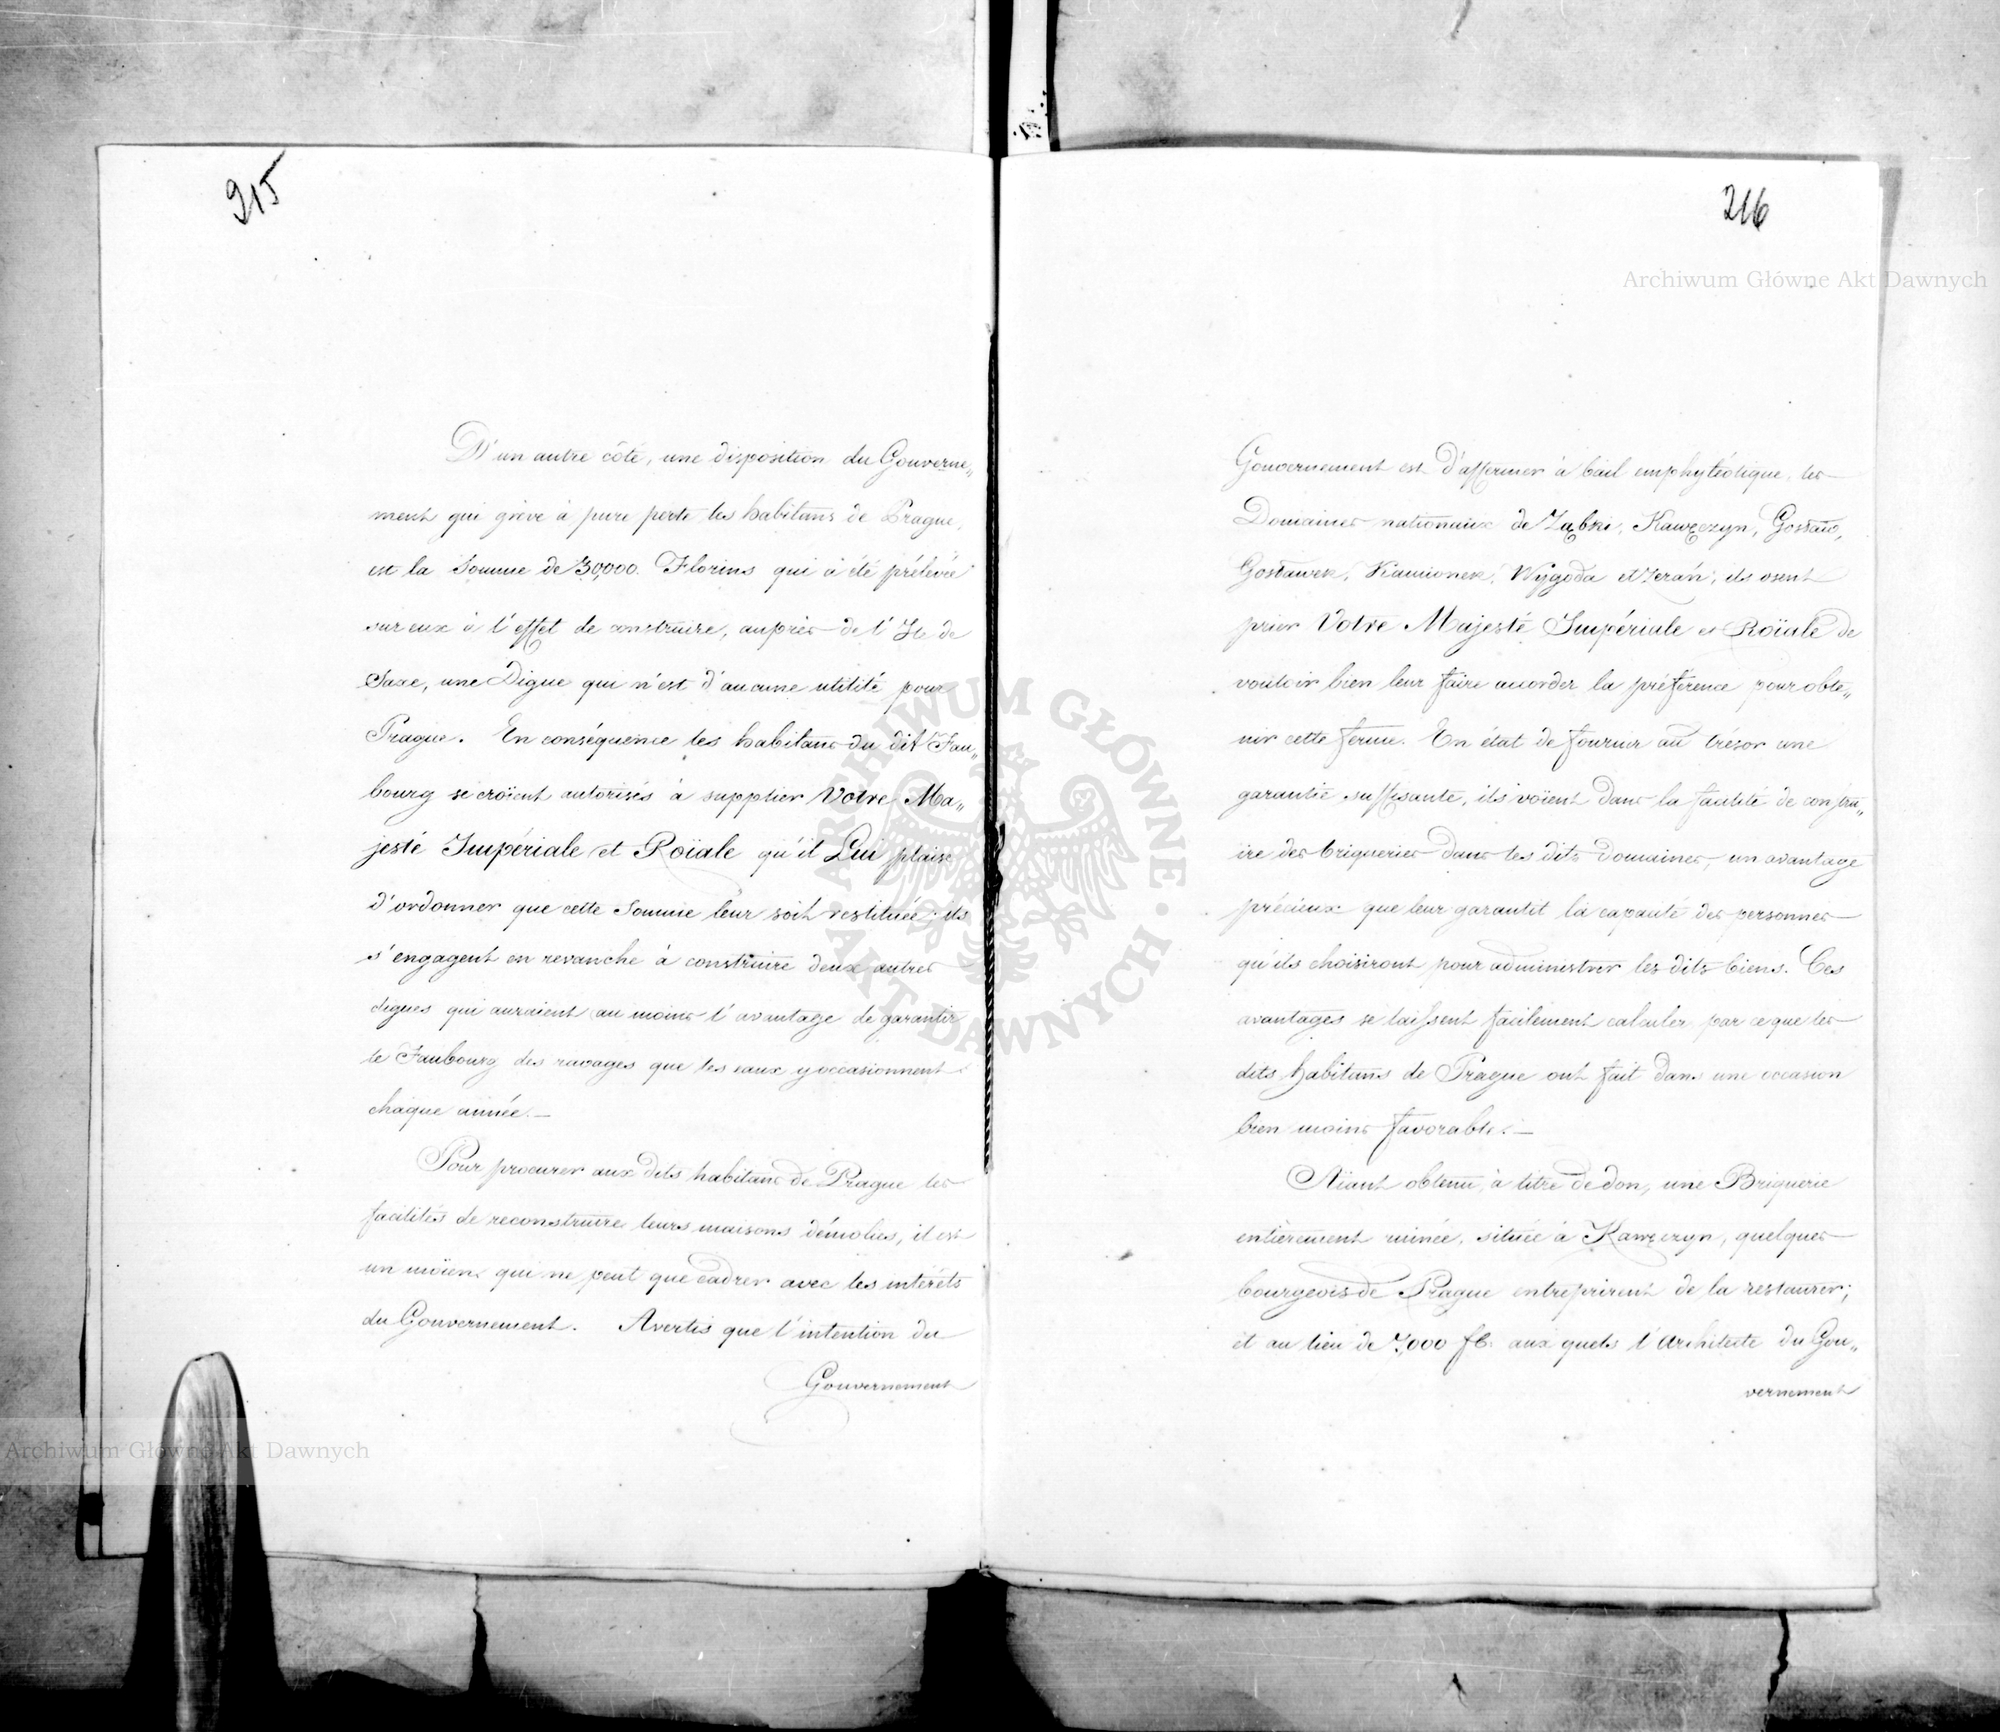 215
D'un autre côté, une disposition du Gouverne„
ment qui grève à pure perte les habitans de Prague,
est la Somme de 30,000. Florins qui a été prélevée
sur eux à l'effet de construire, auprès de l'Île de
Saxe, une Digue qui n'est d'aucune utilité pour
Prague. En conséquence les habitans du dit Fau„
bourg se croïent autorisés à supplier Votre Ma„
jesté Impériale et Roïale qu'il Lui plaise
d'ordonner que cette Somme leur soit restituée; ils
s'engagent en revanche à construire deux autres
digues qui auraient au moins l'avantage de garantir
le Faubourg des ravages que les eaux y occasionnent
chaque année.—
Pour procurer aux dits habitans de Prague les
facilités de reconstruire leurs maisons démolies, il est
un moïen qui ne peut que cadrer avec les intérêts
du Gouvernement. Avertis que l'intention du
Gouvernement
216
Gouvernement est d'affermer à bail emphytéotique, les
Domaines nationaux de Ząbki, Kawęczyn, Gosław,
Gosławek, Kamionek, Wygoda et Zerań, ils osent
prier Votre Majesté Impériale et Roïale de
vouloir bien leur faire accorder la préférence pour obte„
nir cette ferme. En état de fournir au trésor une
garantie suffisante, ils voïent dans la facilité de constru„
ire des briqueries dans les dits Domaines, un avantage
précieux que leur garantit la capacité des personnes
qu'ils choisiront pour administrer les dits biens. Ces
avantages se laissent facilement calculer par ce que les
dits habitans de Prague ont fait dans une occasion
bien moins favorable.—
Aïant obtenu, à titre de don, une Briquerie
entièrement ruinée, située à Kawęczyn, quelques
bourgeois de Prague entreprirent de la restaurer;
et au lieu de 7,000 fl. aux quels l'Architecte du Gou„
vernement
Archiwum Główne Akt Dawnych
ARCHIWUM GŁÓWNE · AKT DAWNYCH ·
Archiwum Główne Akt Dawnych